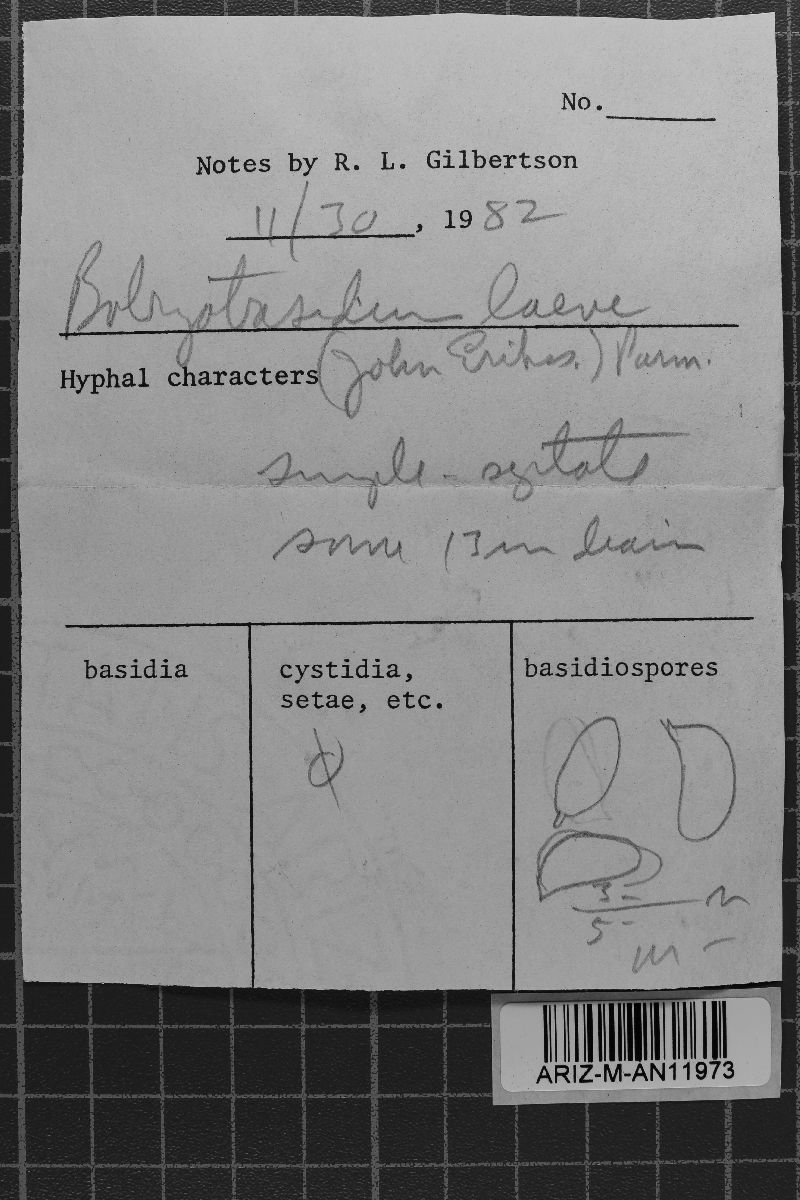 No.
Notes by R. L. Gilbertson
11/30, 1982
Botryobasidium laeve
Hyphal characters (John Erikss.) Parm.
simple-septate
some 13 µm diam
basidia
cystidia,
setae, etc.
basidiospores
φ
3-
5-
m -
ARIZ-M-AN11973